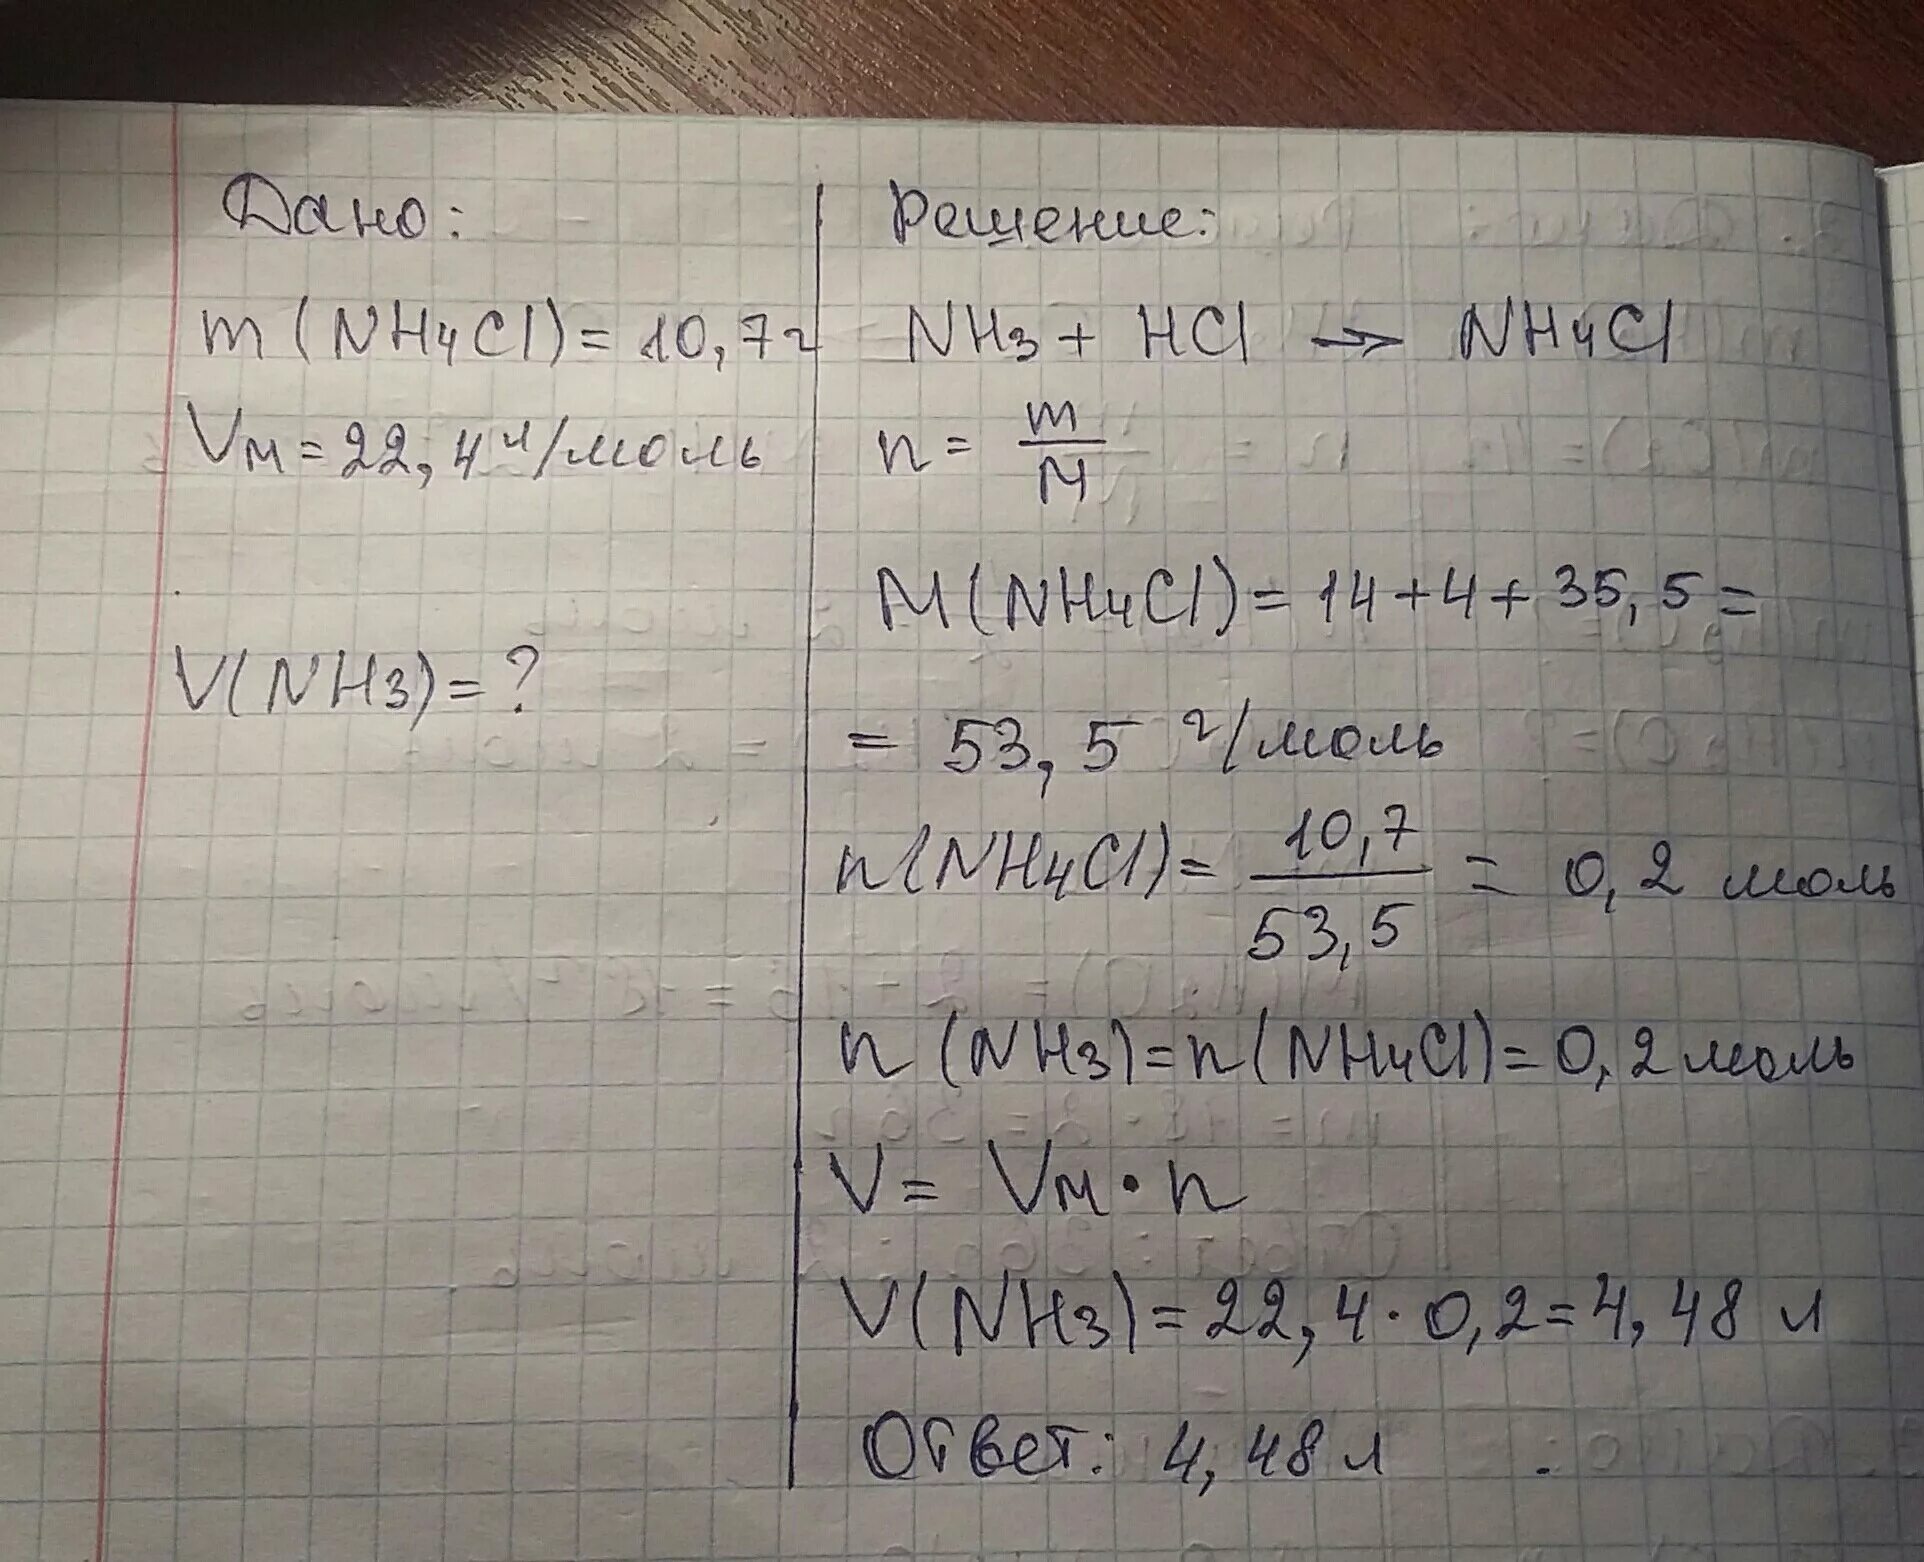 Дано:
m(NH4Cl)=10,7г
Vм=22,4л/моль
V(NH3)=?
Решение:
NH3+HCl→NH4Cl
n=m/M
M(NH4Cl)=14+4+35,5=
=53,5 г/моль
n(NH4Cl)=10,7/53,5=0,2 моль
n(NH3)=n(NH4Cl)=0,2моль
V=Vм·n
V(NH3)=22,4·0,2=4,48 л
Ответ: 4,48 л